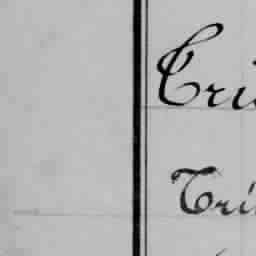 Tri
Tri